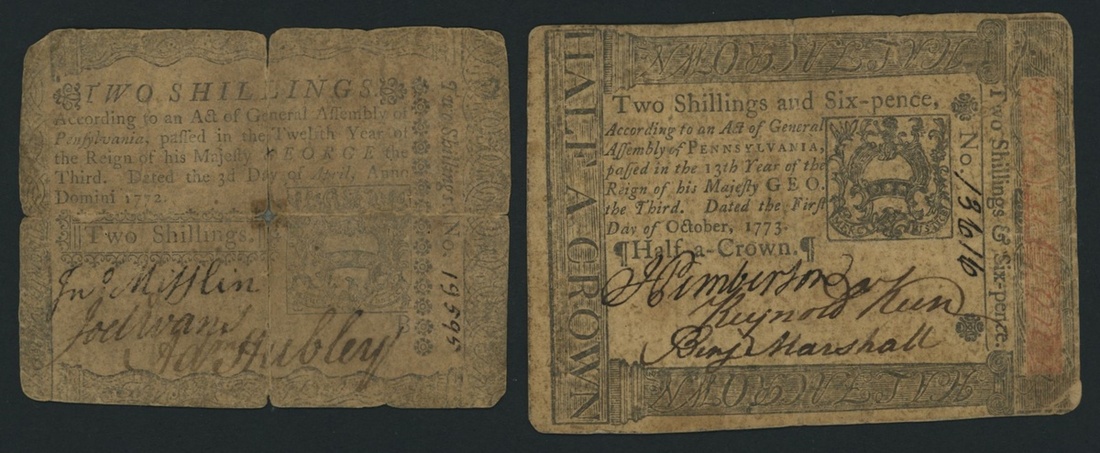 TWO SHILLINGS
According to an Act of General Assembly of
Pensylvania, passed in the Twelfth Year of
the Reign of his Majesty GEORGE the
Third. Dated the 3d Day of April, Anno
Domini 1772.
Two Shillings.
Jno Mifflin
Joel Evans
Adm Hubley
Two Shillings. No. 19595
HALF A CROWN
HALF A CROWN
Two Shillings and Six-pence,
According to an Act of General
Assembly of PENNSYLVANIA,
passed in the 13th Year of the
Reign of his Majesty GEO.
the Third. Dated the First
Day of October, 1773.
¶Half-a-Crown.¶
MERCY JUSTICE
J Pemberton Jr
Reynold Keen
Benj Marshall
HALF A CROWN
No. 13616
Two Shillings & Six-pence.